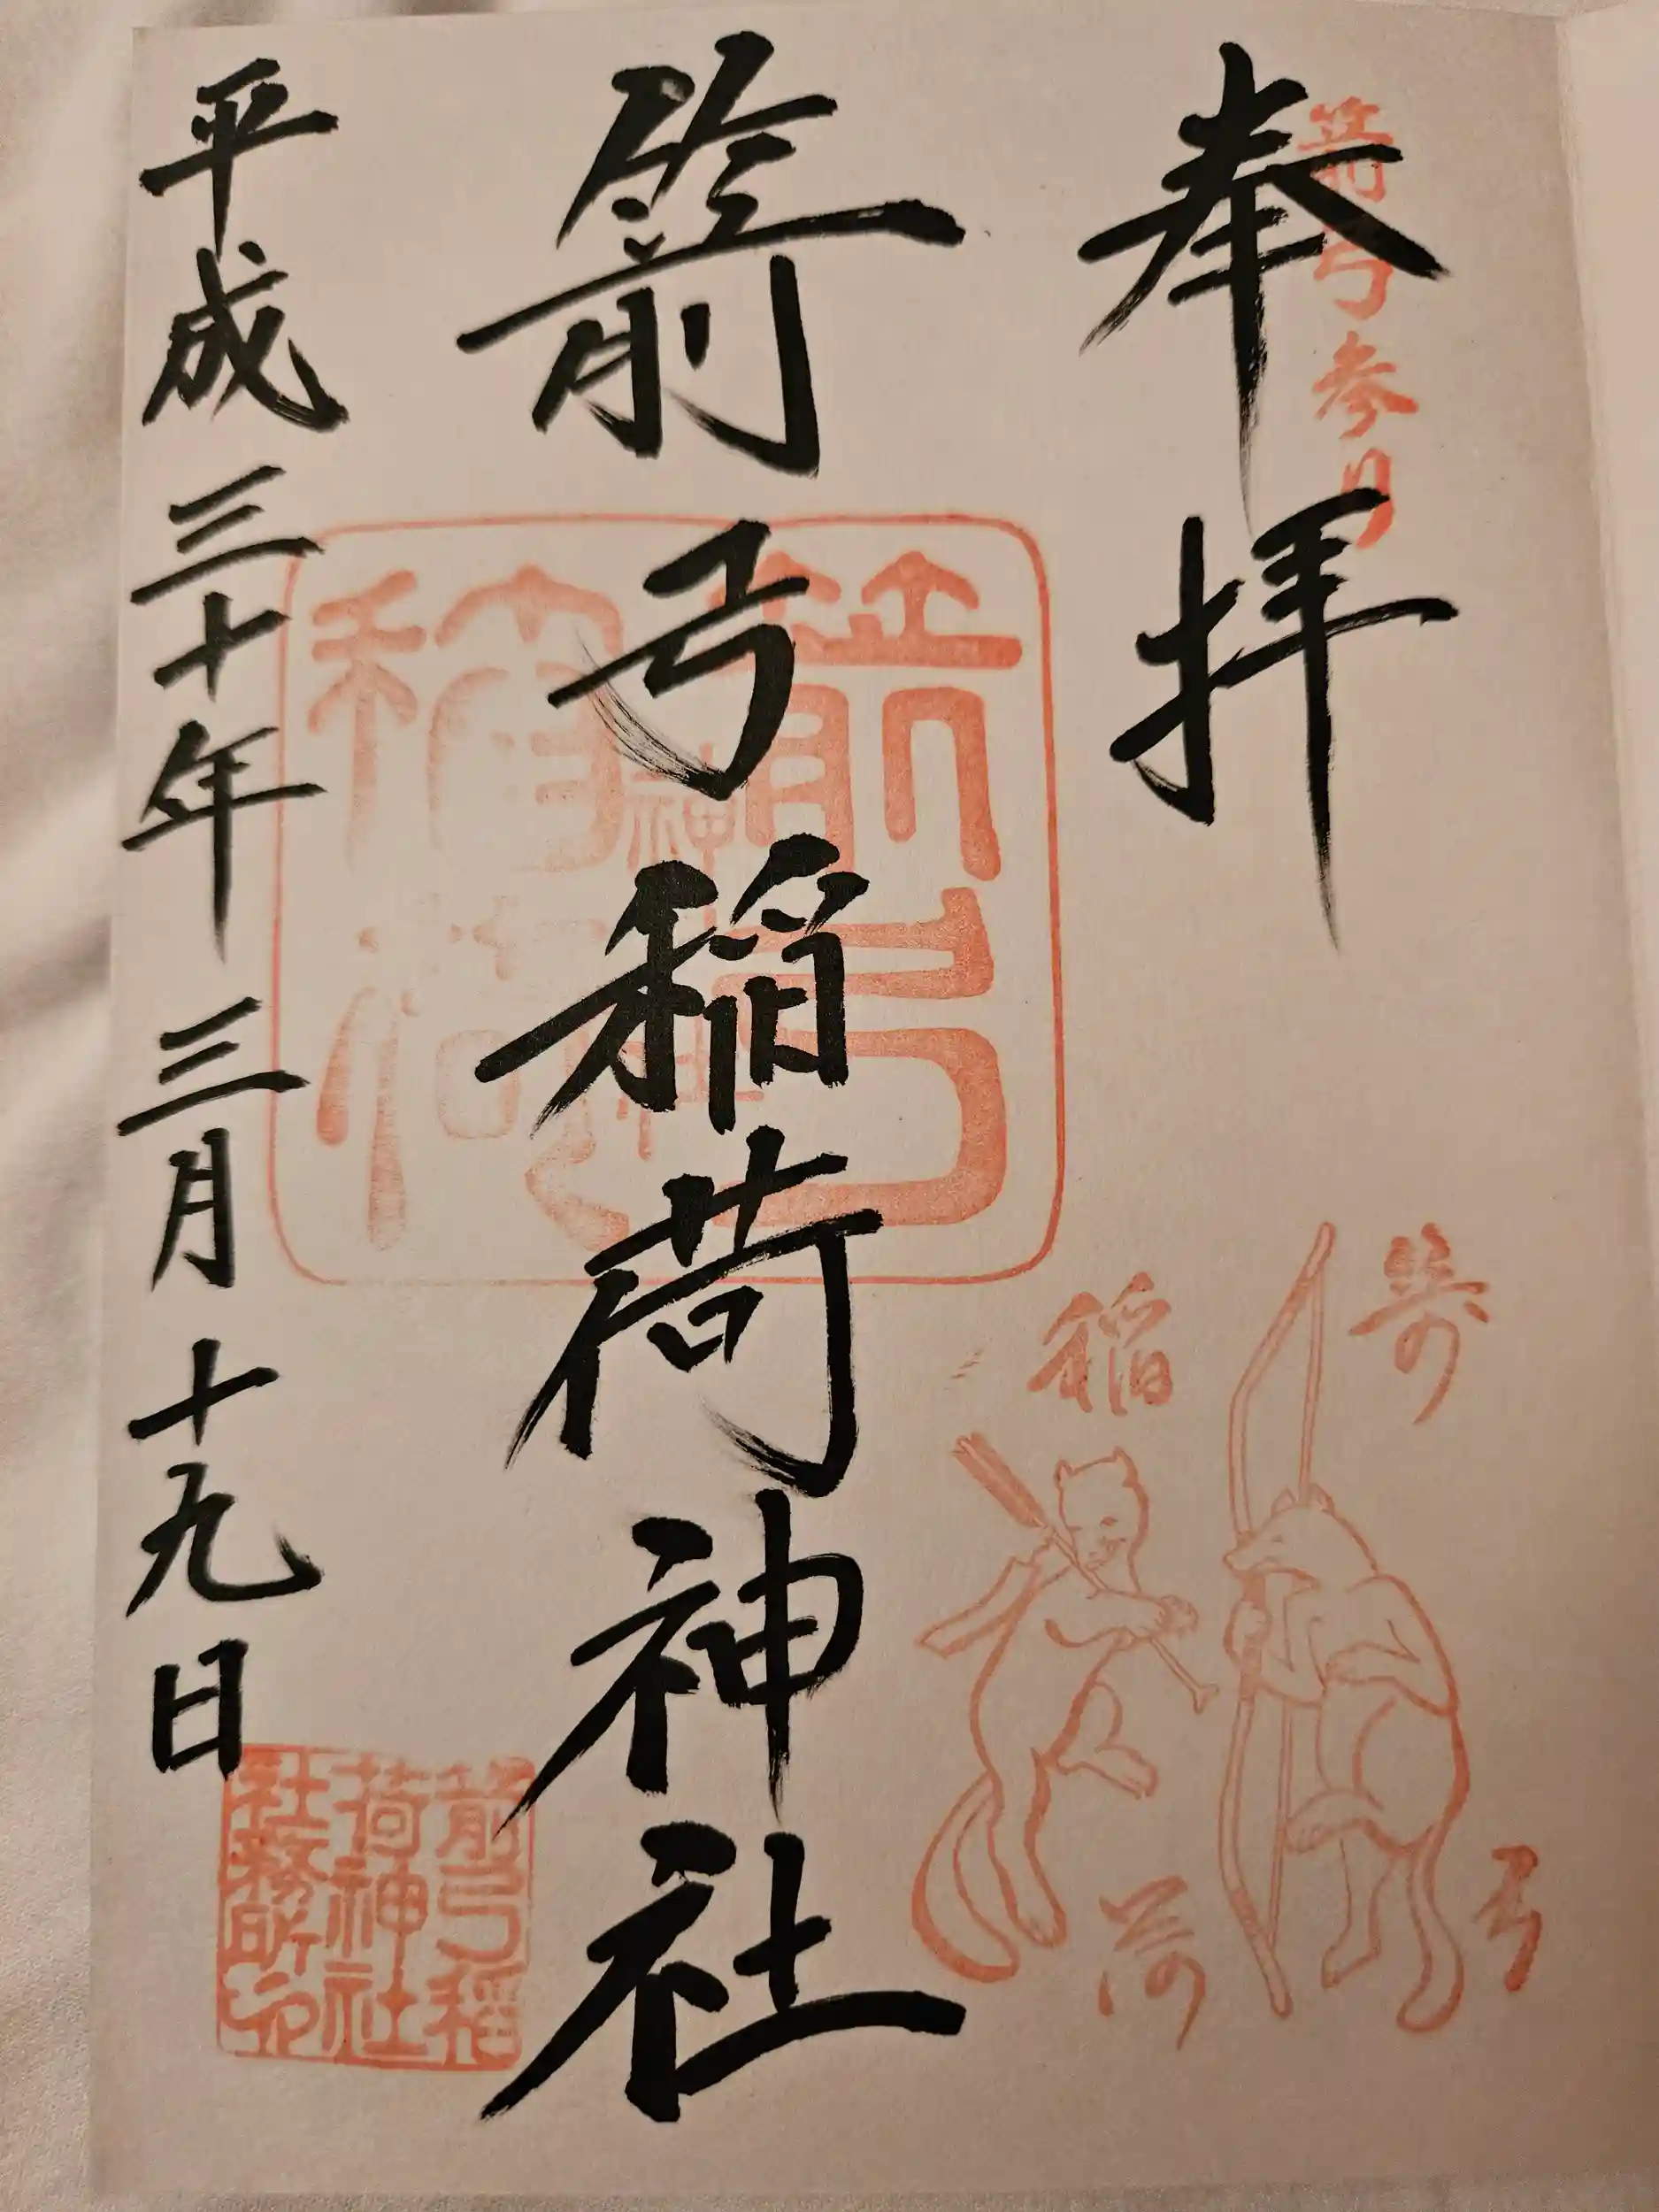 箭弓参
奉拝
箭弓
稲荷
箭弓稲荷神社
箭弓
神社
稲荷
箭弓稲
荷神社
社務所印
平成三十年三月十九日